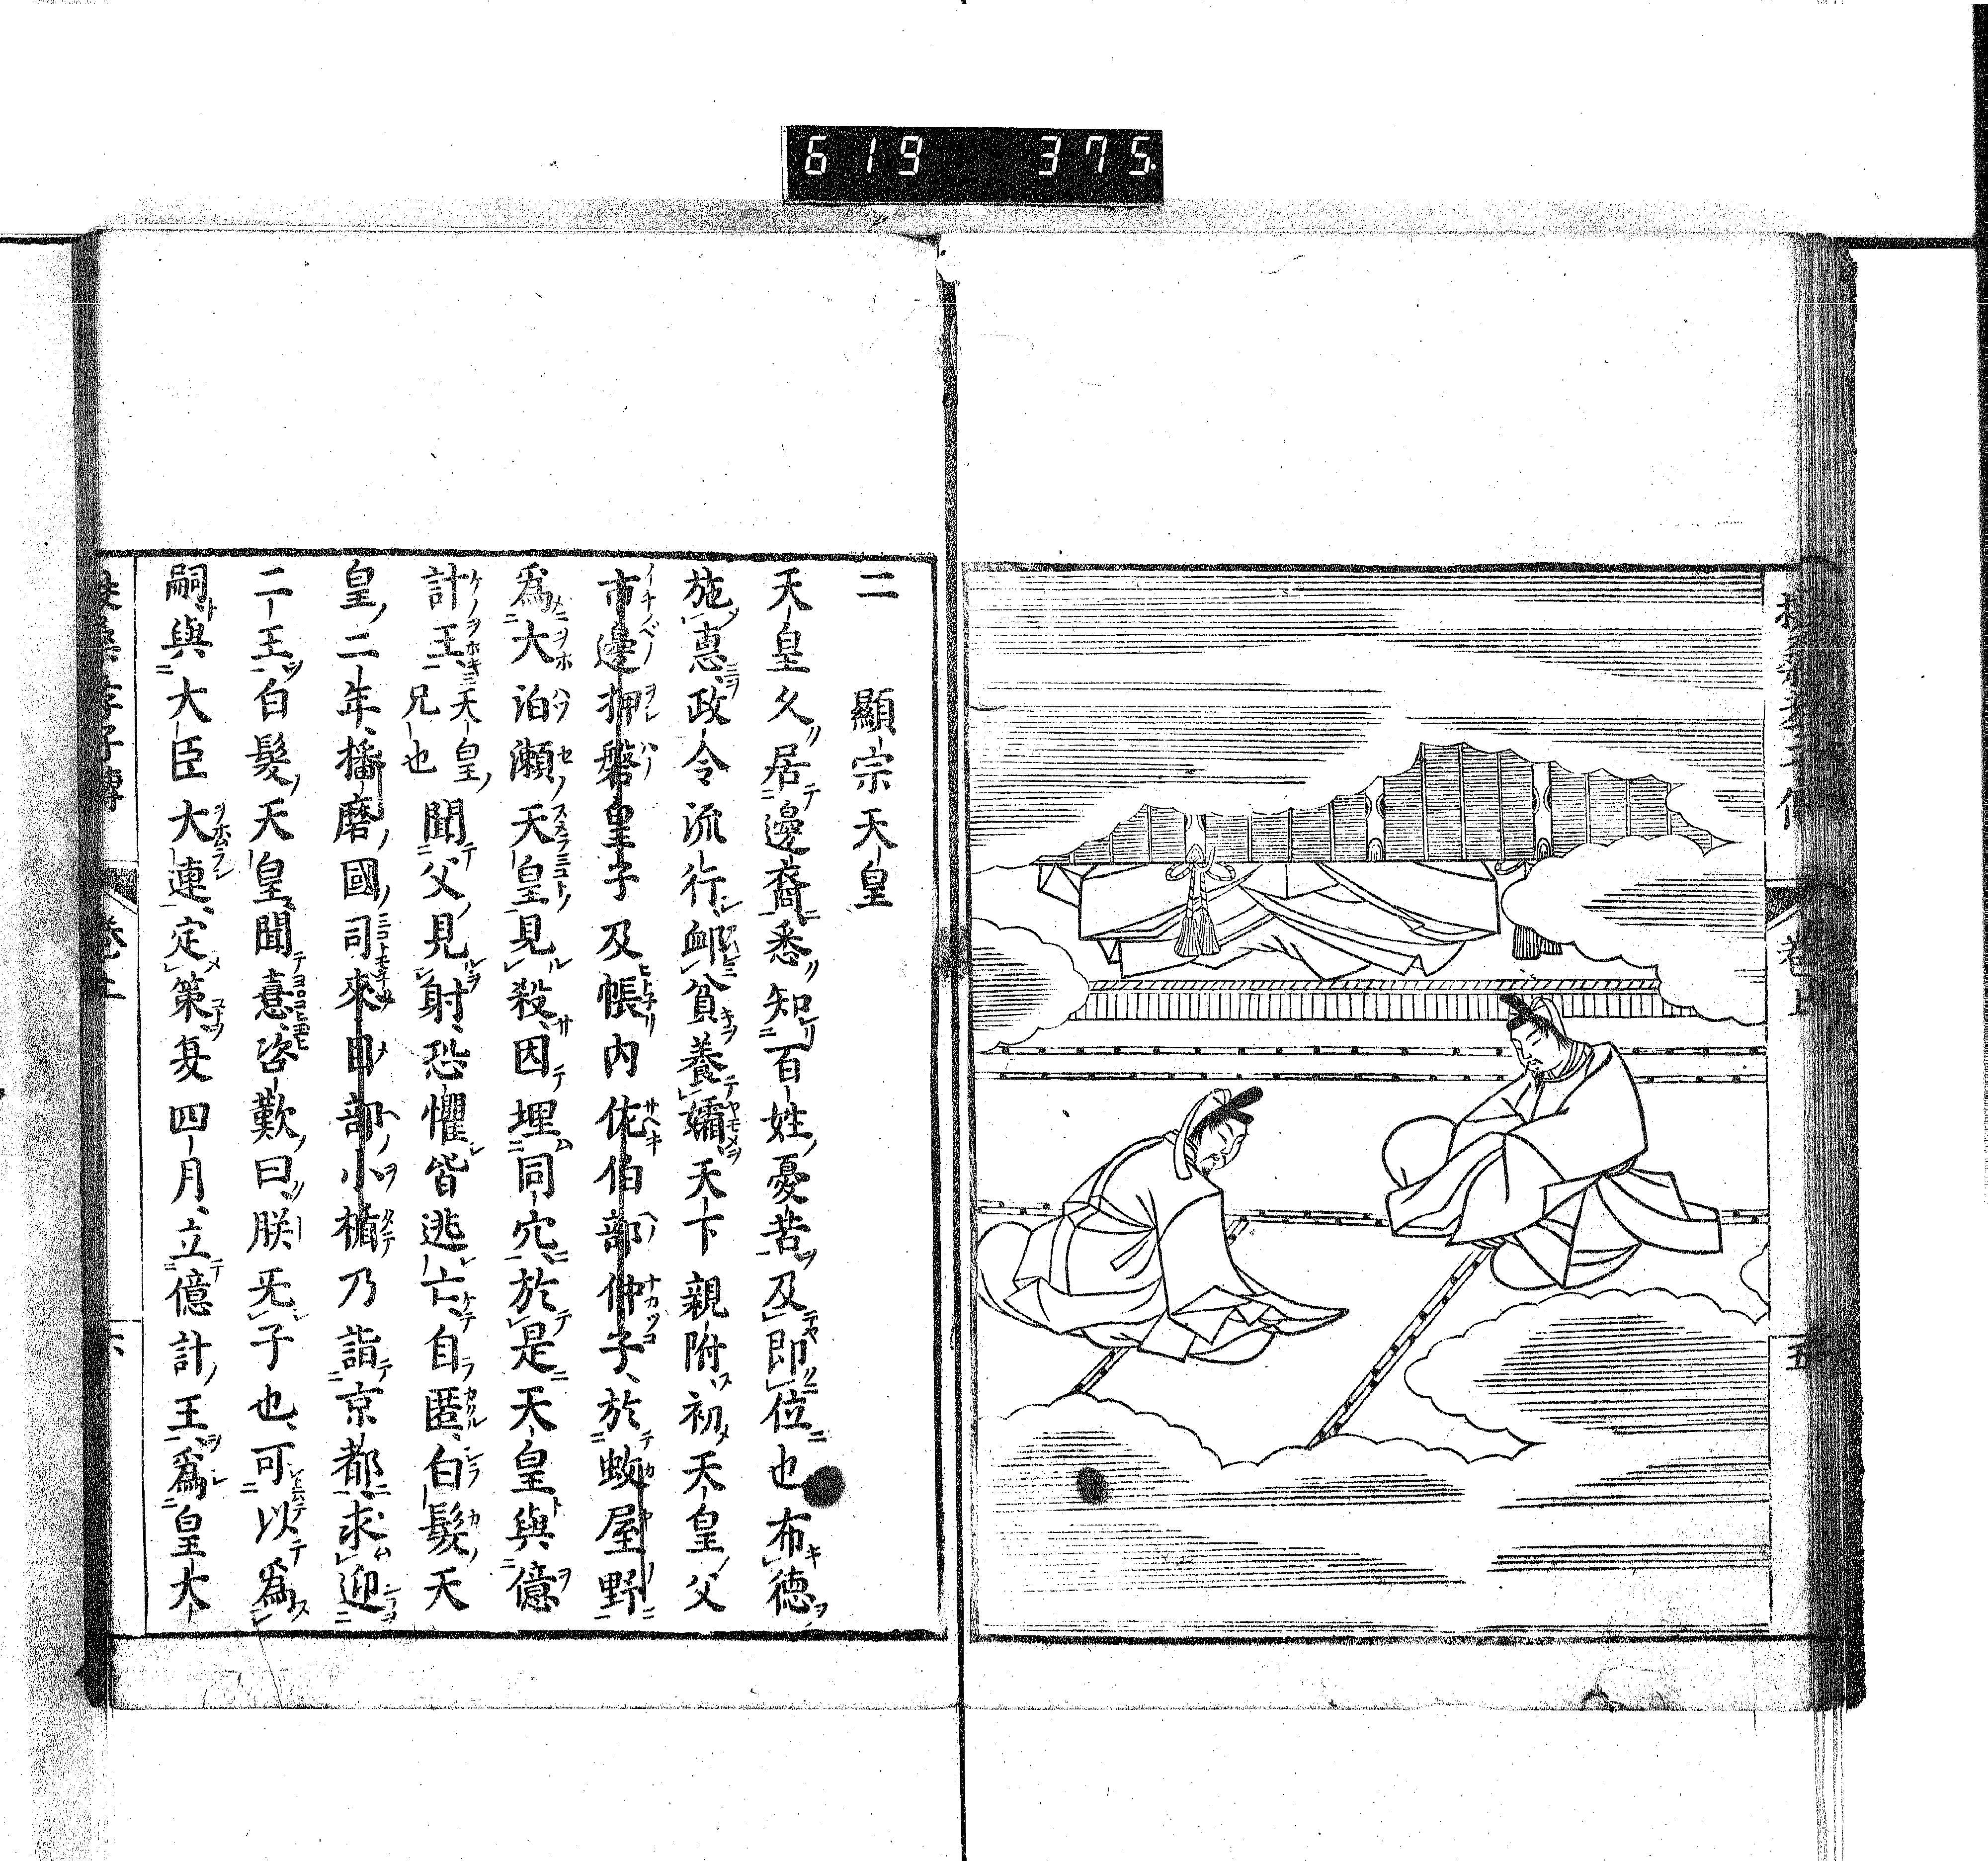 619 375
卷上
五
二 顯宗天皇
天皇久居邊裔悉知百姓憂苦及即位也布德
施惠政令流行䘏貧養孀天下親附初天皇父
市邊押磐皇子及帳內佐伯部仲子於蚊屋野
爲大泊瀨天皇見殺因埋同穴於是天皇與億
計王天皇兄也聞父見射恐懼皆逃亡自匿白髮天
皇二年播磨國司來目部小楯乃詣京都求迎
二王白髮天皇聞憙咨歎曰朕无子也可以爲
嗣與大臣大連定策夏四月立億計王爲皇太
孝子傳 卷上